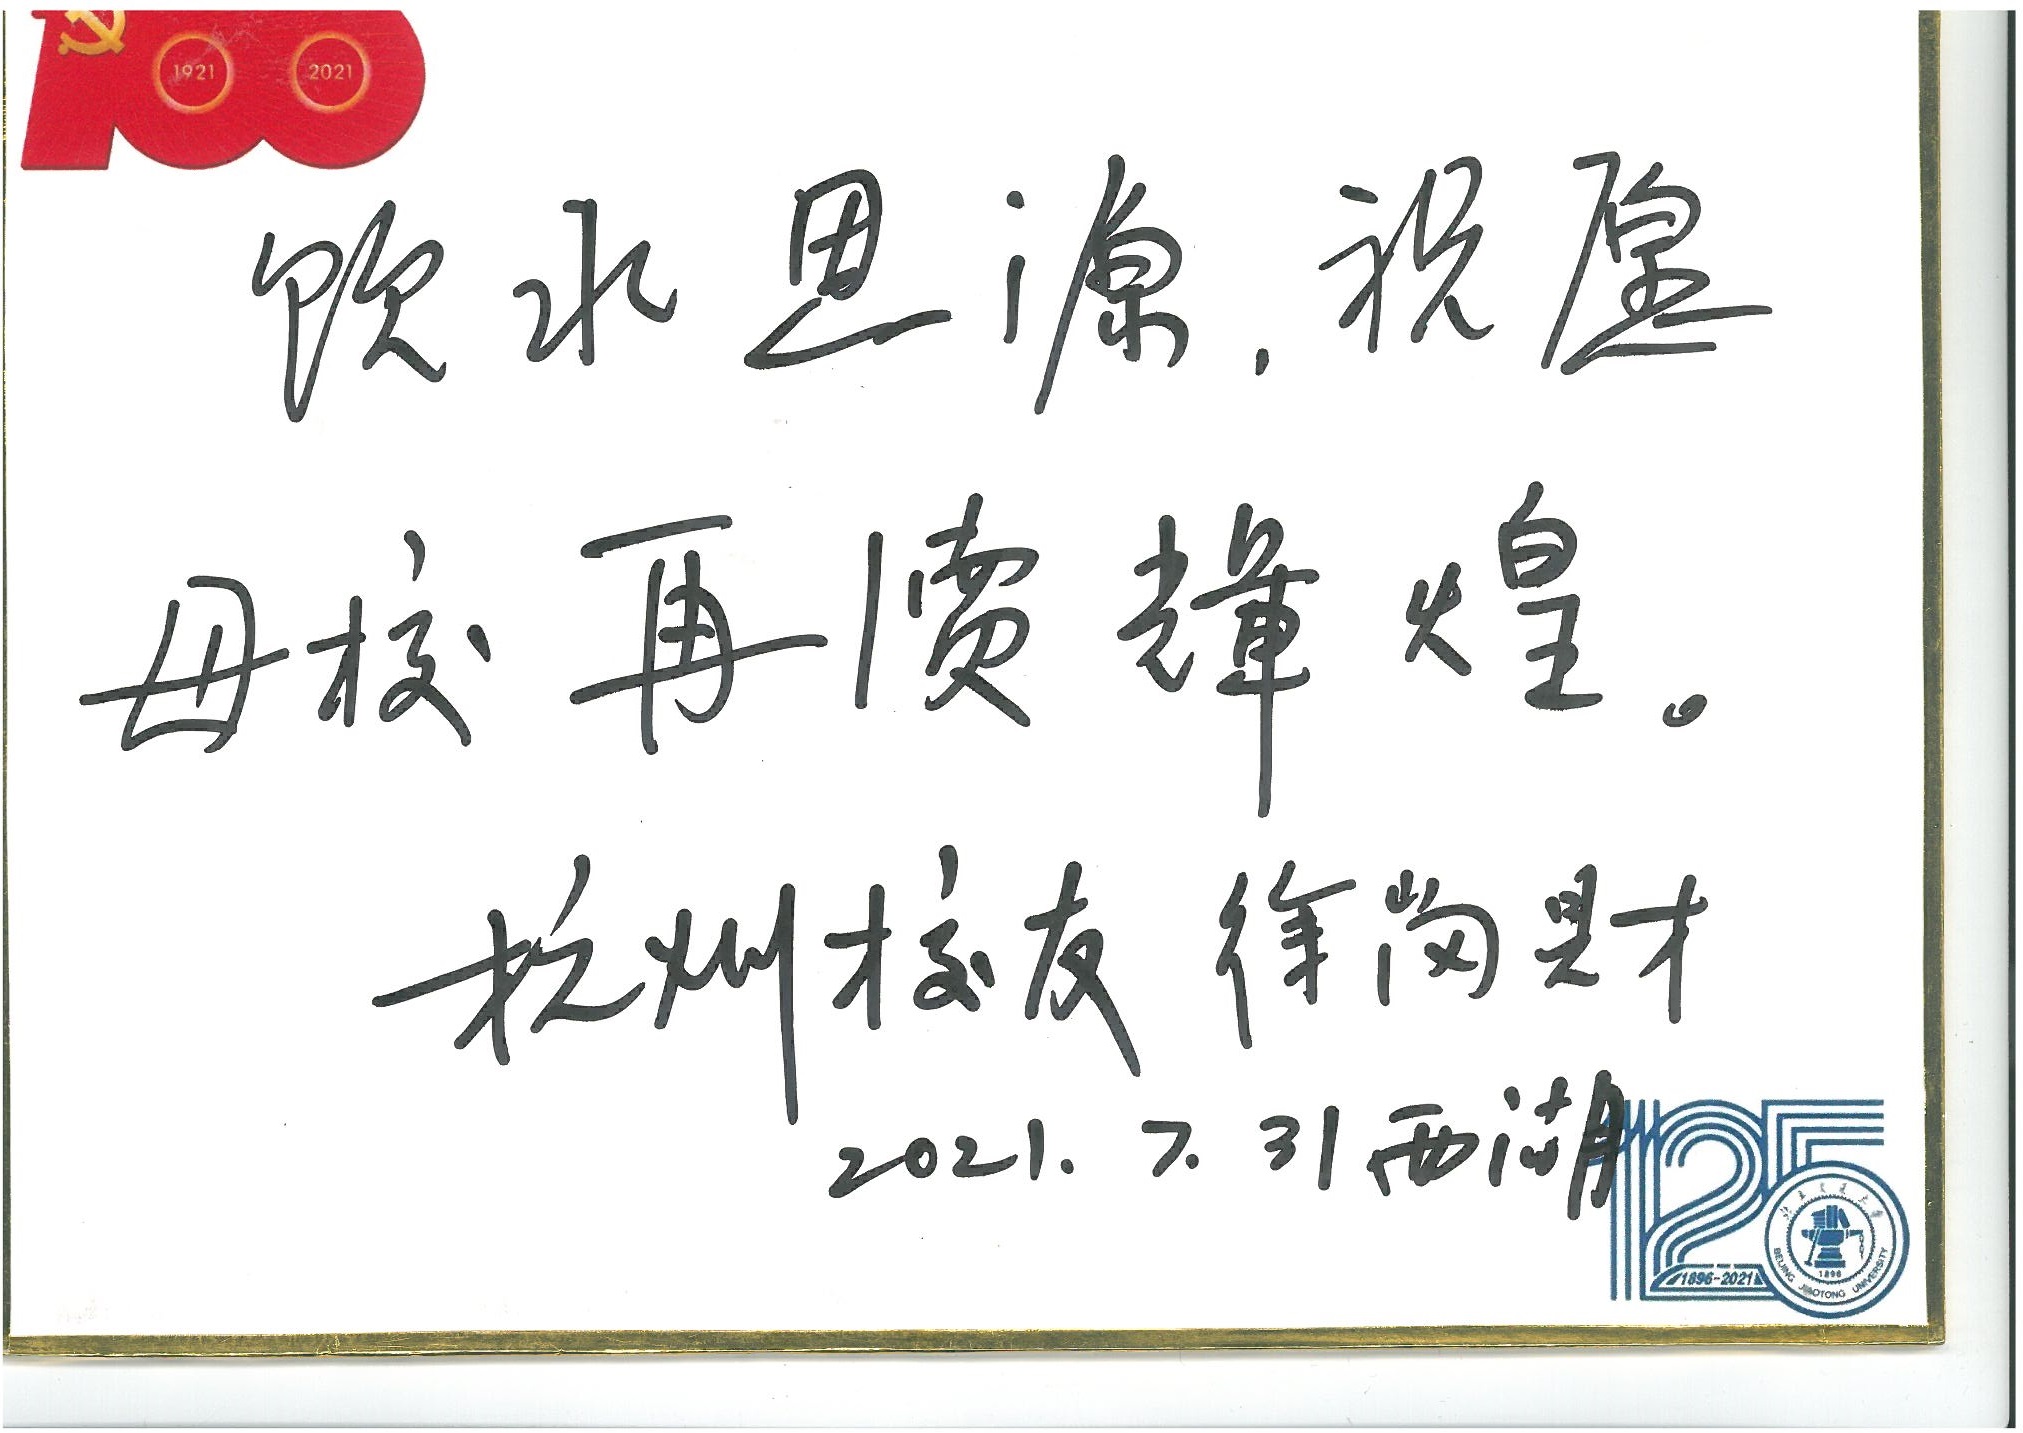 100
1921 2021
饮水思源,祝愿
母校再續輝煌。
杭州校友 徐岗财
2021.7.31 西湖
125
1896-2021
北京交通大学
1896
BEIJING JIAOTONG UNIVERSITY